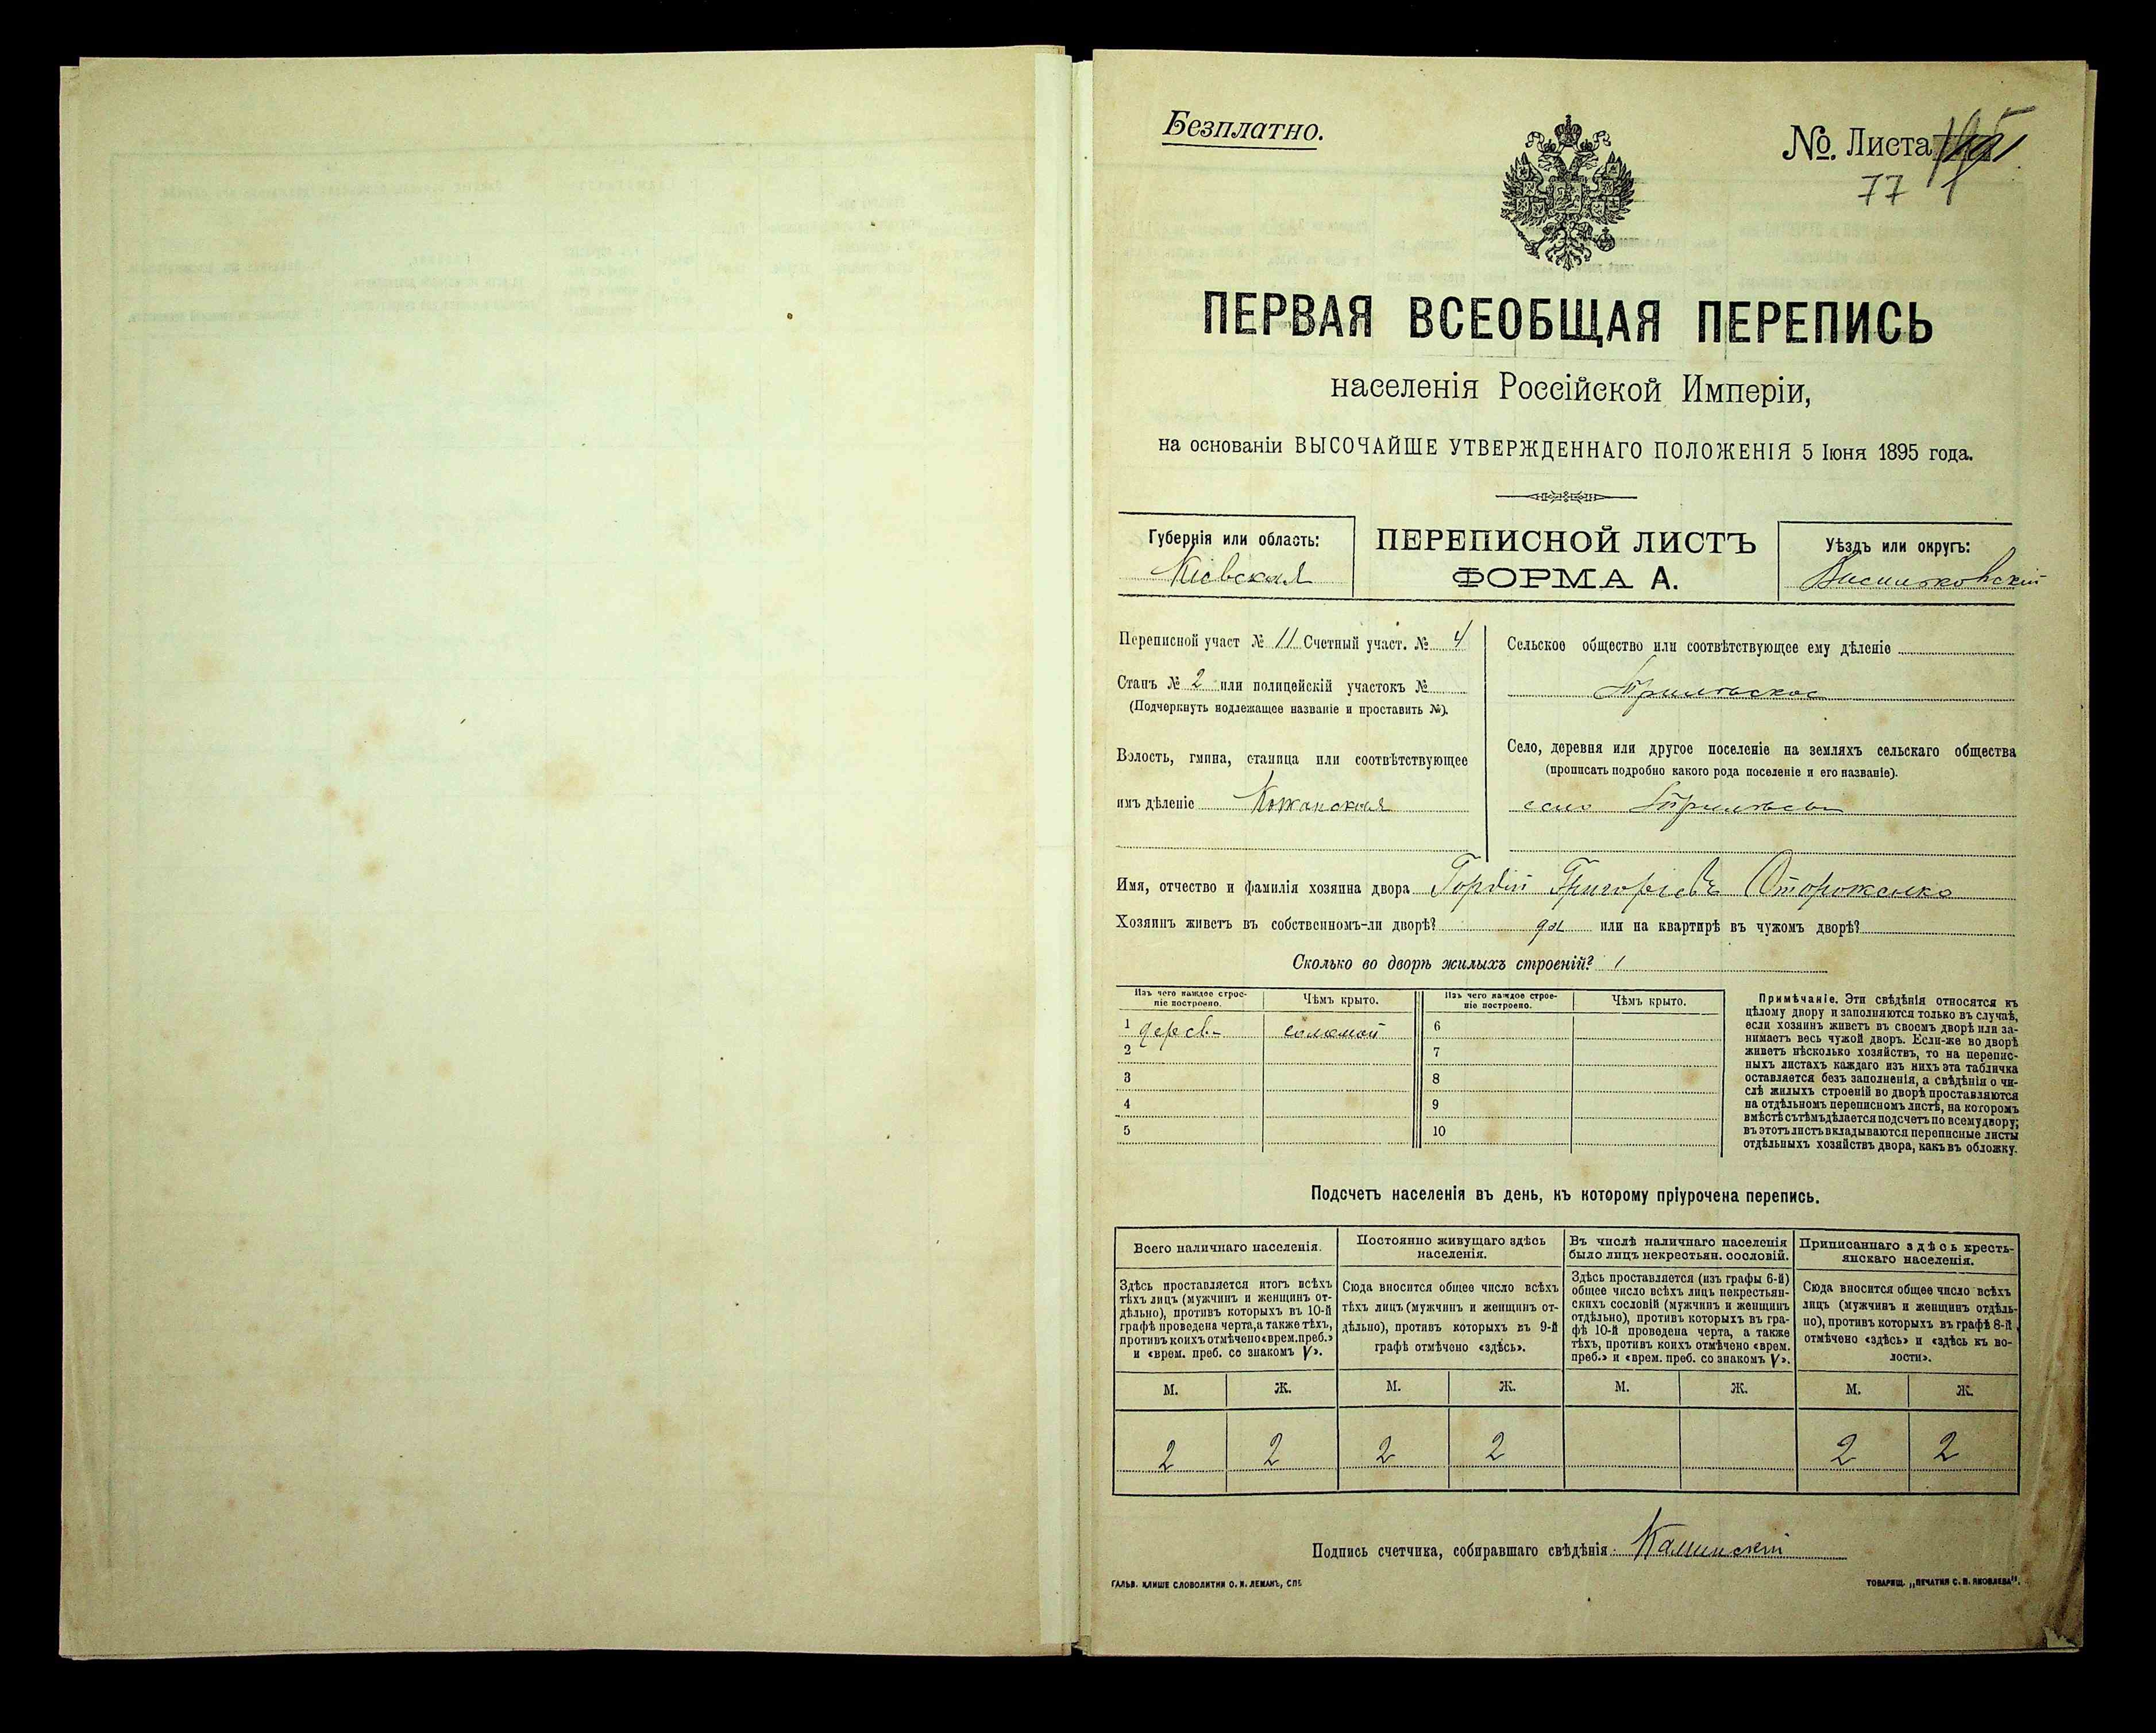 Безплатно.
№ Листа
77
ПЕРВАЯ ВСЕОБЩАЯ ПЕРЕПИСЬ
населенія Россійской Имперіи,
на основаніи ВЫСОЧАЙШЕ УТВЕРЖДЕННАГО ПОЛОЖЕНІЯ 5 Іюня 1895 года.
Губернія или область:
Кіевская
ПЕРЕПИСНОЙ ЛИСТЪ
ФОРМА А.
Уѣздъ или округъ:
Васильковскій
Переписной участ № 11 Счетный участ. № 4
Станъ № 2 или полицейскій участокъ №
(Подчеркнуть подлежащее названіе и проставить №).
Волость, гмина, станица или соотвѣтствующее
имъ дѣленіе Кожанская
Сельское общество или соотвѣтствующее ему дѣленіе
Трилѣское
Село, деревня или другое поселеніе на земляхъ сельскаго общества
(прописать подробно какого рода поселеніе и его названіе).
село Трилѣсы
Имя, отчество и фамилія хозяина двора Гордій Григоріевъ Стороженко
Хозяинъ живетъ въ собственномъ-ли дворѣ? да или на квартирѣ въ чужомъ дворѣ?
Сколько во дворѣ жилыхъ строеній? 1
Изъ чего каждое строе-
ніе построено.
Чѣмъ крыто.
Изъ чего каждое строе-
ніе построено.
Чѣмъ крыто.
1 дерев. соломой 6
2 7
3 8
4 9
5 10
Примѣчаніе. Эти свѣдѣнія относятся къ
цѣлому двору и заполняются только въ случаѣ,
если хозяинъ живетъ въ своемъ дворѣ или за-
нимаетъ весь чужой дворъ. Если-же во дворѣ
живетъ нѣсколько хозяйствъ, то на перепис-
ныхъ листахъ каждаго изъ нихъ эта табличка
оставляется безъ заполненія, а свѣдѣнія о чи-
слѣ жилыхъ строеній во дворѣ проставляются
на отдѣльномъ переписномъ листѣ, на которомъ
вмѣстѣ съ тѣмъ дѣлается подсчетъ по всему двору;
въ этотъ листъ вкладываются переписные листы
отдѣльныхъ хозяйствъ двора, какъ въ обложку.
Подсчетъ населенія въ день, къ которому пріурочена перепись.
Всего наличнаго населенія.
Здѣсь проставляется итогъ всѣхъ
тѣхъ лицъ (мужчинъ и женщинъ от-
дѣльно), противъ которыхъ въ 10-й
графѣ проведена черта, а также тѣхъ,
противъ коихъ отмѣчено «врем. преб.»
и «врем. преб. со знакомъ V».
Постоянно живущаго здѣсь
населенія.
Сюда вносится общее число всѣхъ
тѣхъ лицъ (мужчинъ и женщинъ от-
дѣльно), противъ которыхъ въ 9-й
графѣ отмѣчено «здѣсь».
Въ числѣ наличнаго населенія
было лицъ некрестьян. сословій.
Здѣсь проставляется (изъ графы 6-й)
общее число всѣхъ лицъ некрестьян-
скихъ сословій (мужчинъ и женщинъ
отдѣльно), противъ которыхъ въ гра-
фѣ 10-й проведена черта, а также
тѣхъ, противъ коихъ отмѣчено «врем.
преб.» и «врем. преб. со знакомъ V».
Приписаннаго здѣсь кресть-
янскаго населенія.
Сюда вносится общее число всѣхъ
лицъ (мужчинъ и женщинъ отдѣль-
но), противъ которыхъ въ графѣ 8-й
отмѣчено «здѣсь» и «здѣсь къ во-
лости».
М. Ж. М. Ж. М. Ж. М. Ж.
2 2 2 2 2 2
Подпись счетчика, собиравшаго свѣдѣнія
ГАЛЬВ. КЛИШЕ СЛОВОЛИТНИ О. И. ЛЕМАНЪ, СПБ
ТОВАРИЩ. „ПЕЧАТНЯ С. П. ЯКОВЛЕВА".